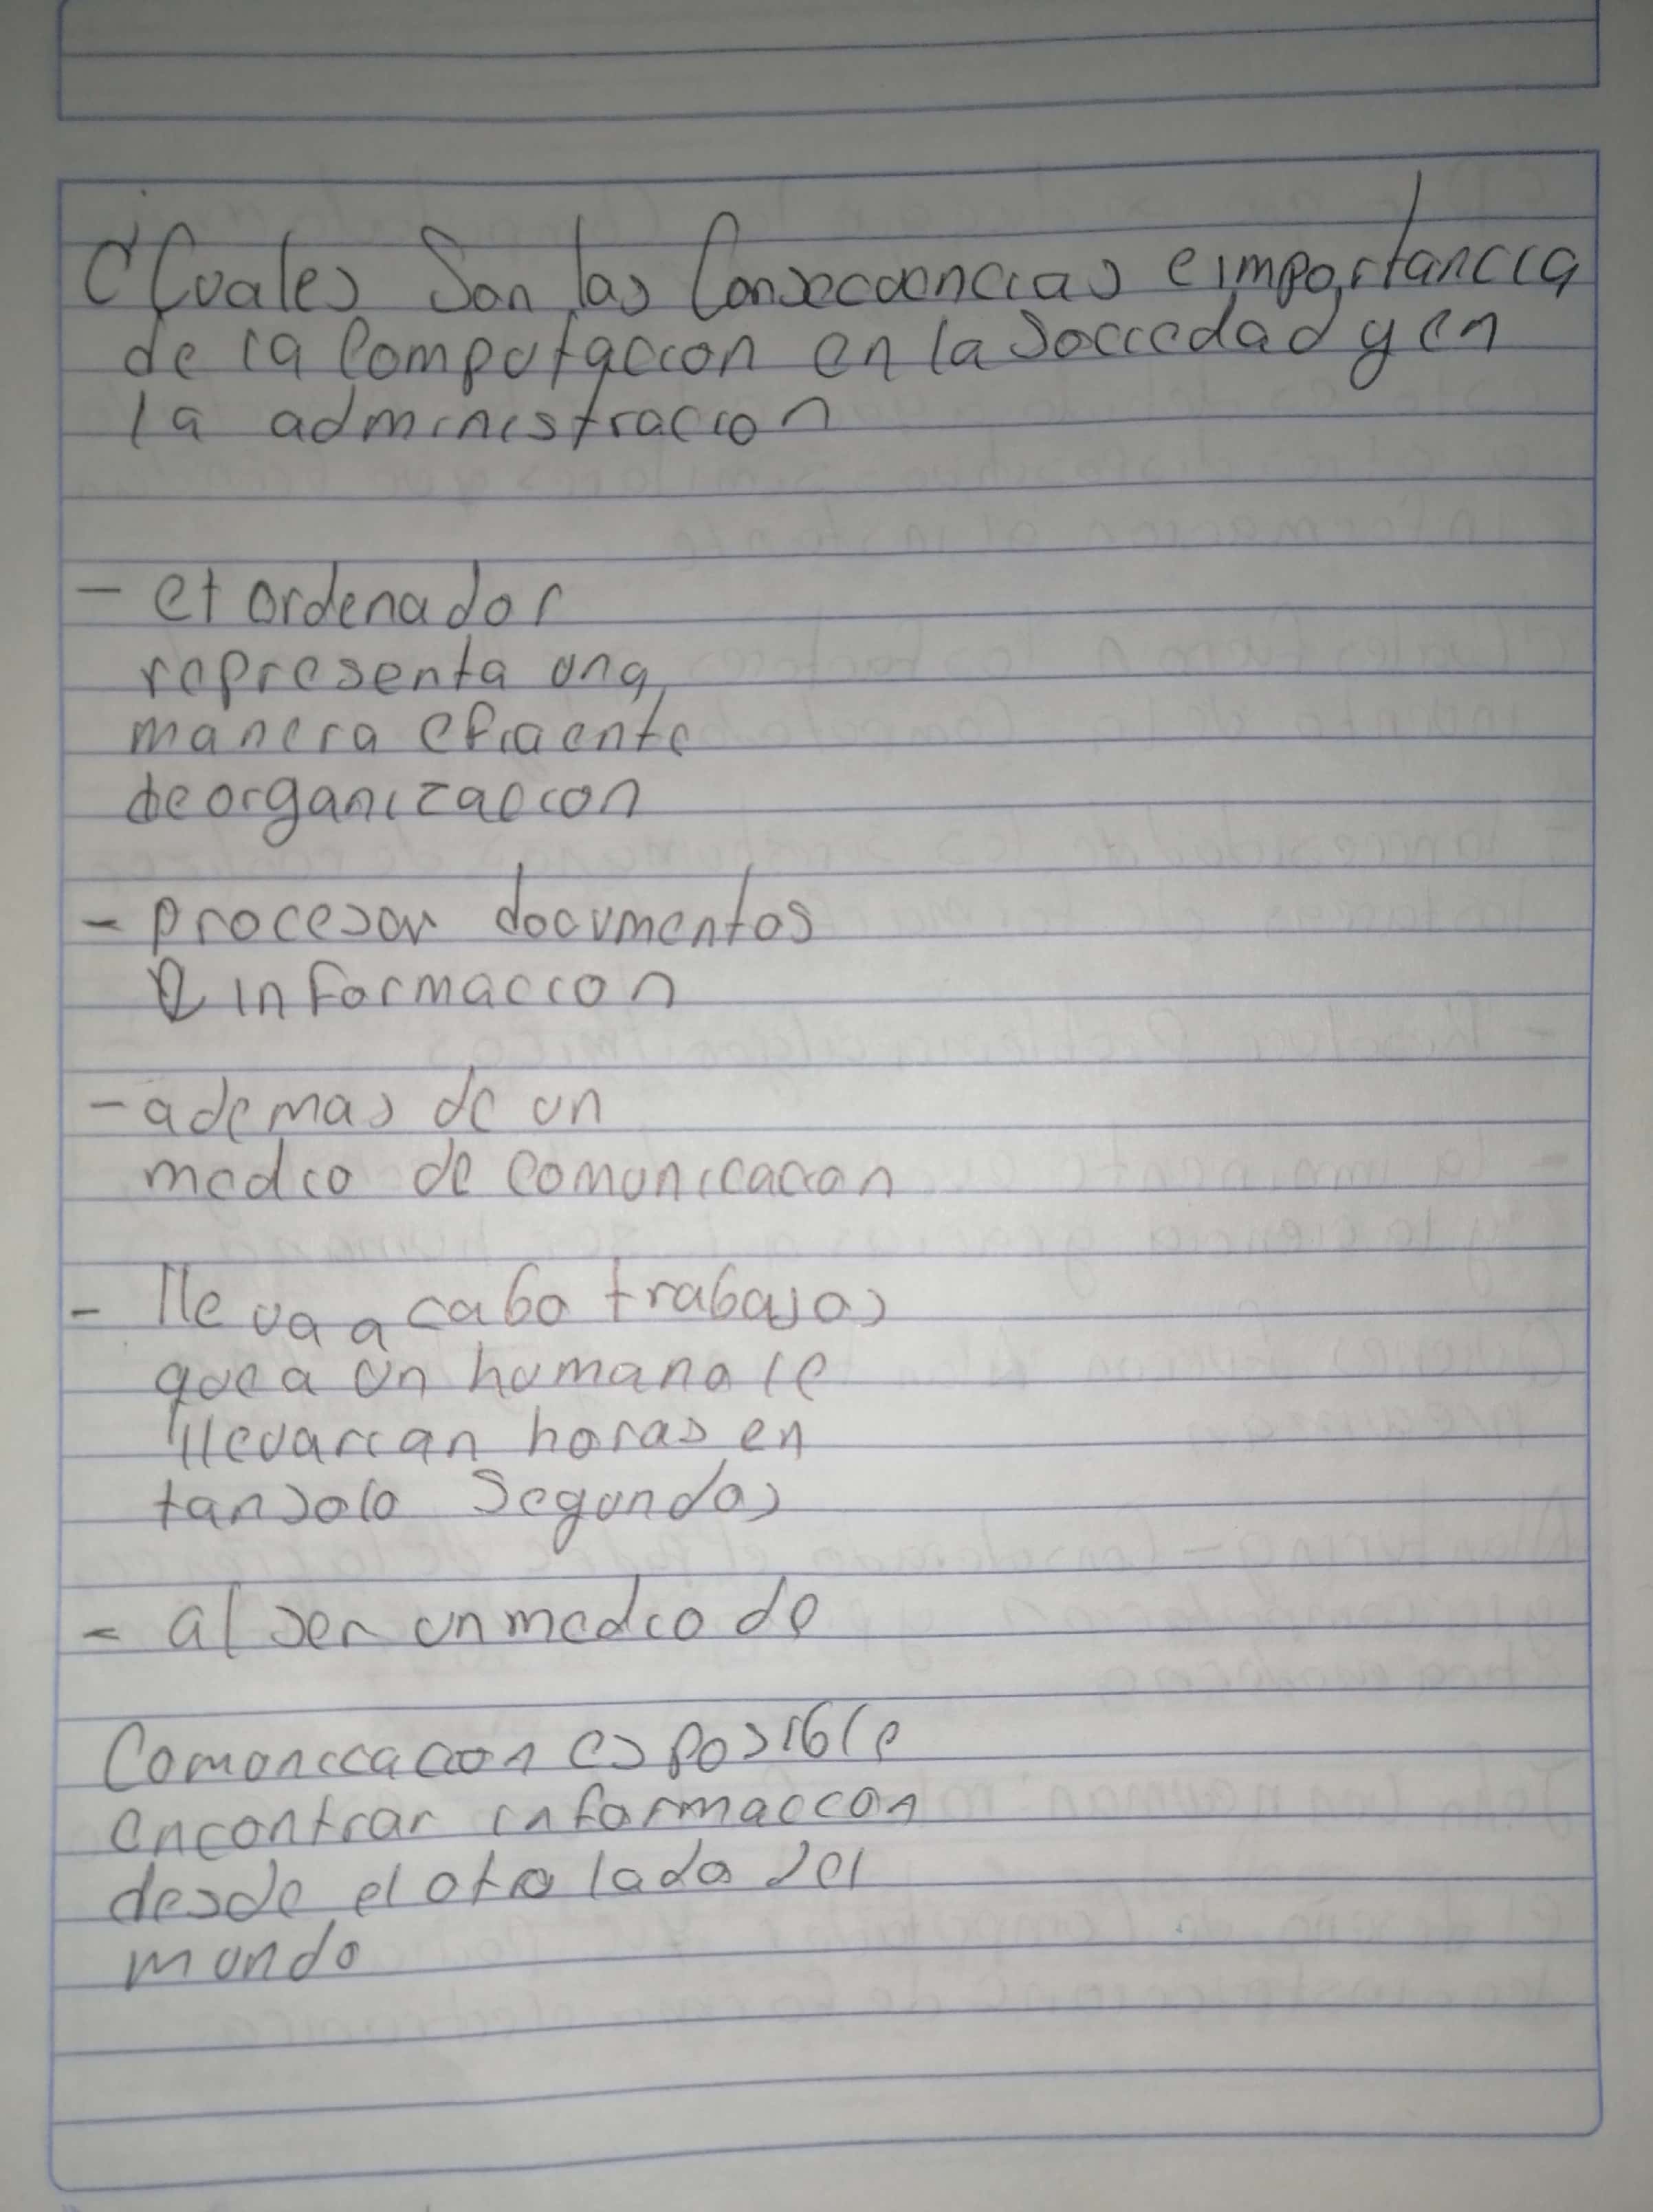 ¿Cuales Son las Consecuencias e importancia
de la Computacion en la Sociedad y en
la administracion
- el ordenador
representa una
manera eficiente
de organizacion
- procesar documentos
e informacion
- ademas de un
medio de comunicacion
- lleva a cabo trabajos
que a un humano le
llevarian horas en
tan solo Segundos
- al ser un medio de
Comunicacion es posible
encontrar informacion
desde el otro lado del
mundo